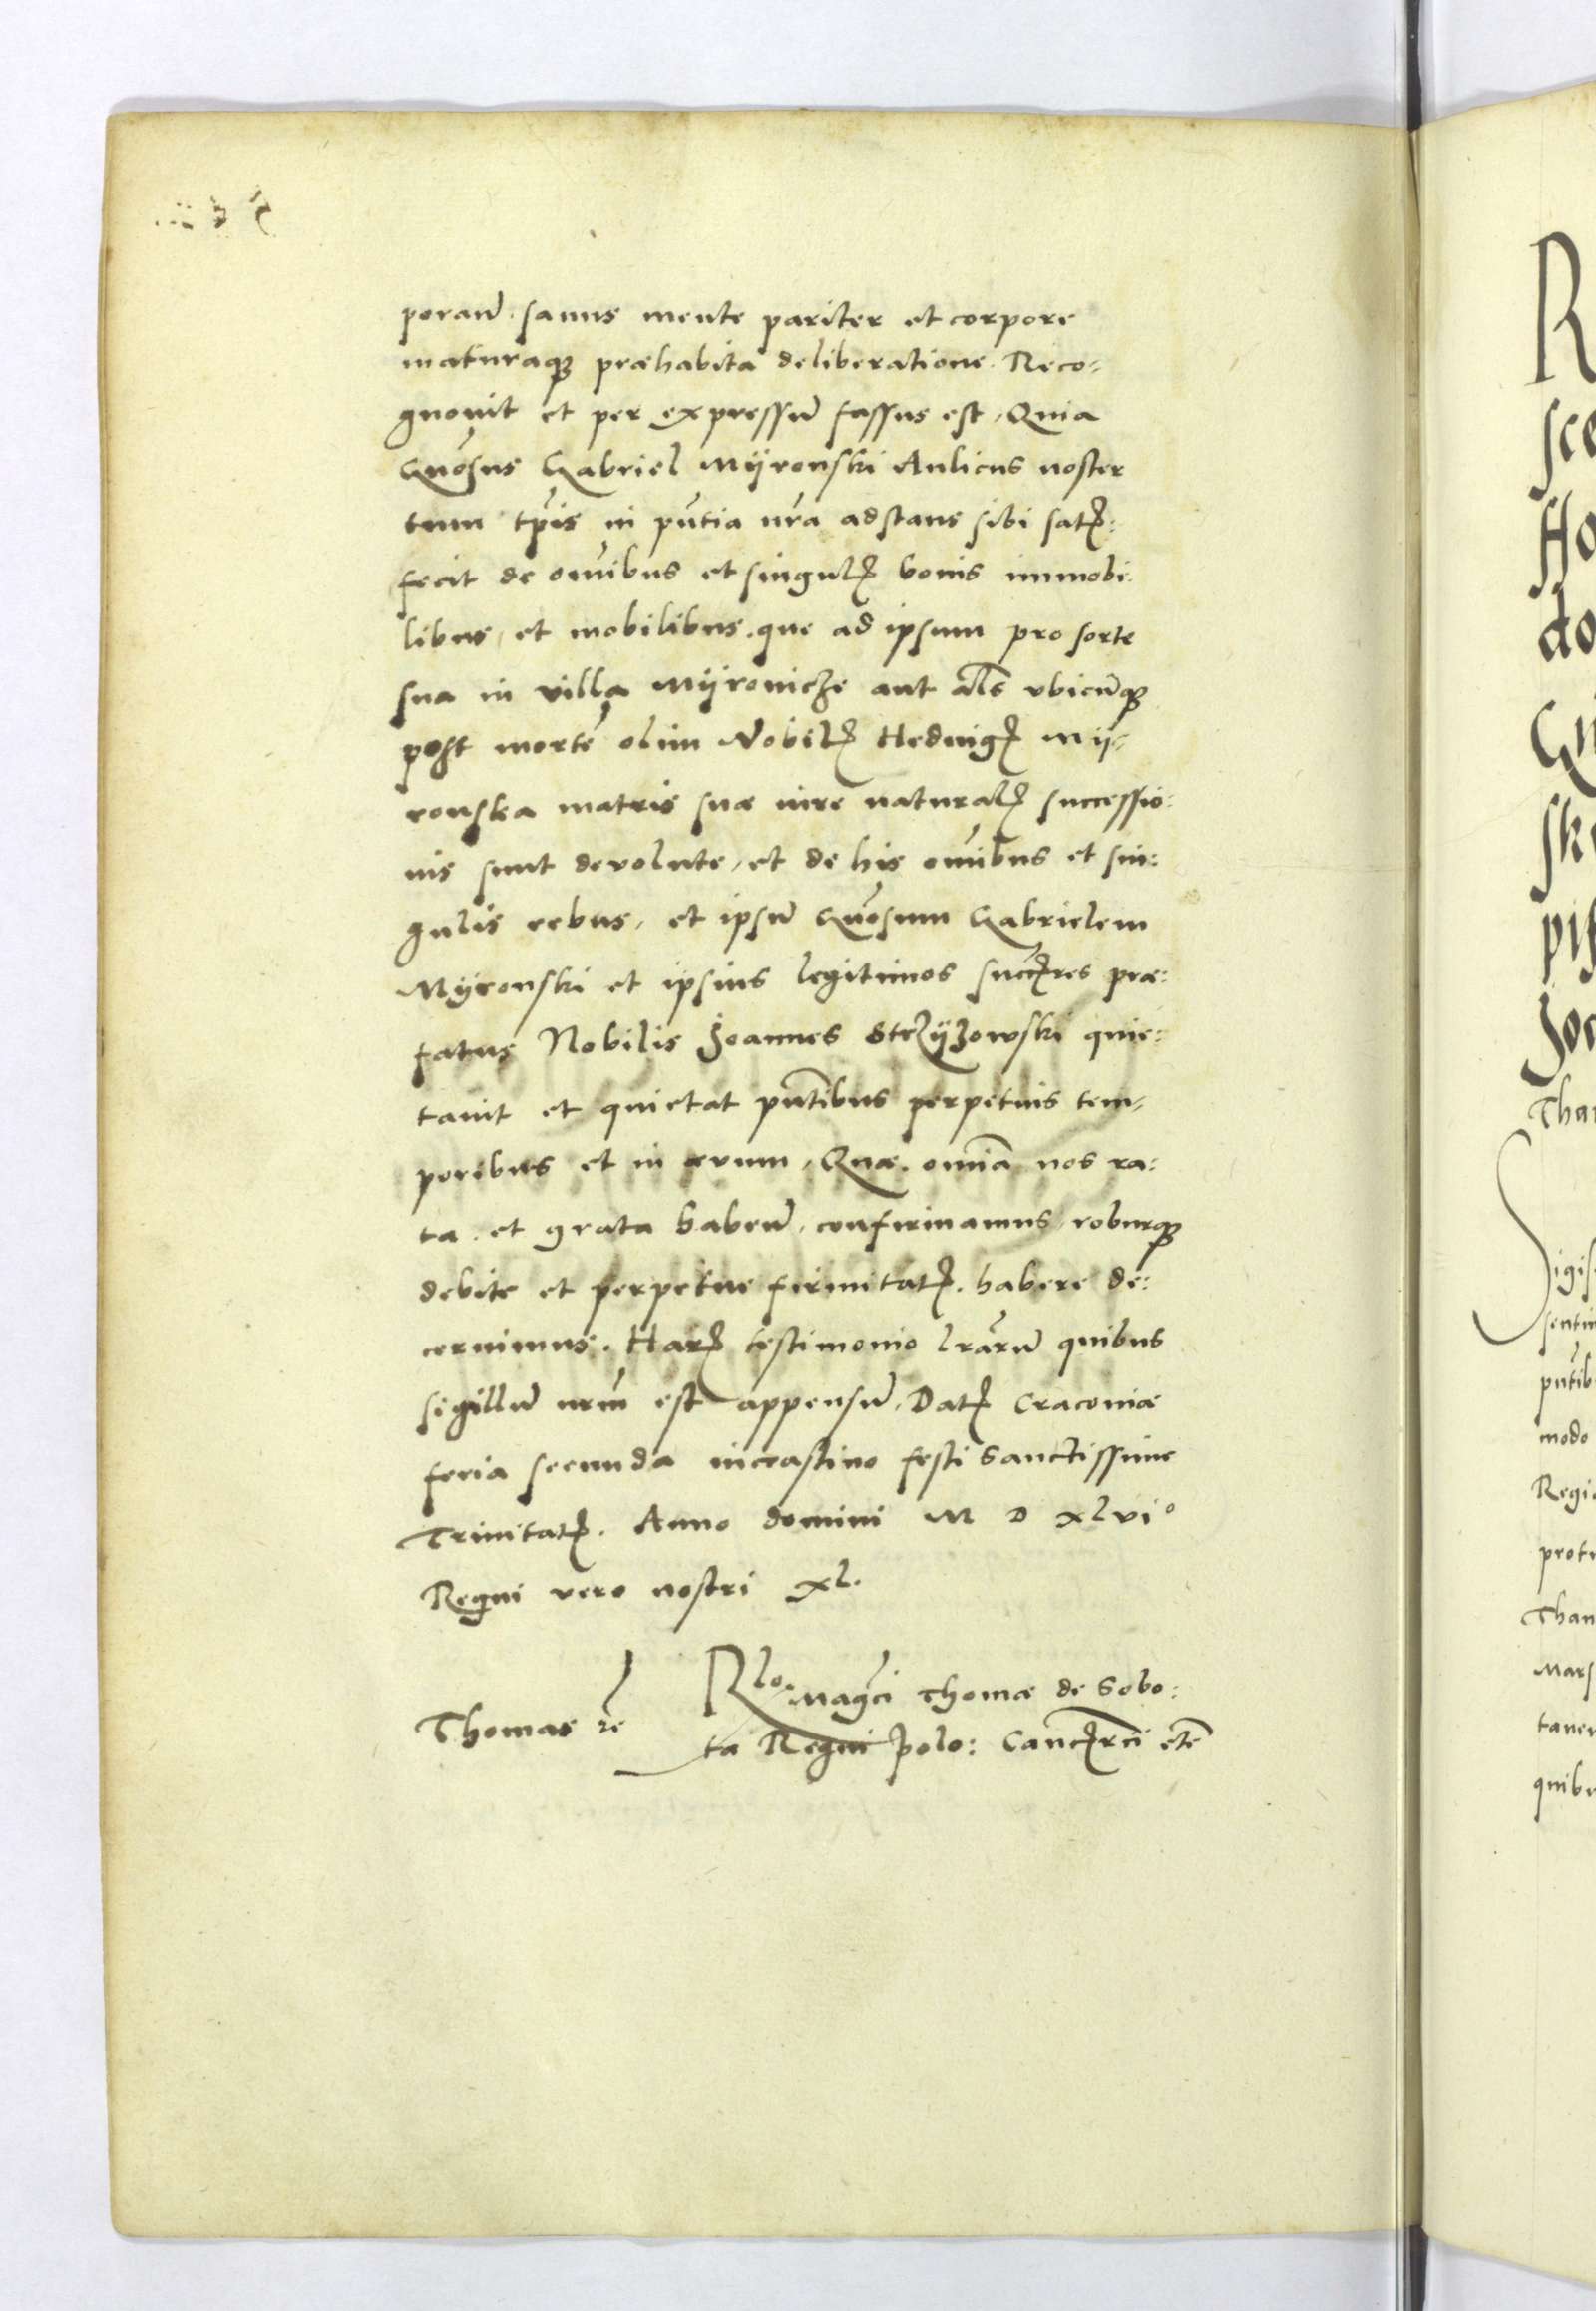 poranũ. sanus mente pariter et corpore
maturaqꝫ præhabita deliberatione. Reco⸗
gnouit et per expressũ fassus est, Quia
Gñosus Gabriel Mÿronski Aulicus noster
tum tp̃is in pñtia nr̃a adstans sibi satꝭ:
fecit de oĩnibus et singulꝭ bonis immobi⸗
libus, et mobilibus. que ad ipsum pro sorte
sua in villa Mÿronicze aut al̃s vbicũqꝫ
post mortẽ olim Nobilꝭ Heduigꝭ Mÿ⸗
ronska matris suæ iure naturalꝭ successio:
nis sunt deuolute, et de his oĩnibus et sin:
gulis rebus, et ipsũ Gñosum Gabrielem
Mÿronski et ipsius legitimos succꝭres præ:
fatus Nobilis Joannes Strzÿzowski quie:
tauit et quietat pñtibus perpetuis tem⸗
poribus et in æuum, Quæ. om̃ia nos ra:
ta. et grata habeñ, confirmamus, roburqꝫ
debite et perpetue firmitatꝭ. habere de:
cernimus. Harꝭ testimonio lr̃arũ quibus
sigillũ nr̃m est appensũ, Datꝭ Cracouiæ
feria secunda incrastino festi Sanctissime
Trinitatꝭ. Anno domini M D xlviº
Regni vero nostri xl.
Rlo. Magc̃i Thomæ de Sobo:
Thomas
ta Regni Polo: Cancꝭrĩ etc̃
R
sce
Ho
do
ski
pis
Joa
Tha
Sigis
sentiu
pñtib
modo
Regi
Than
Mars
tane
quib